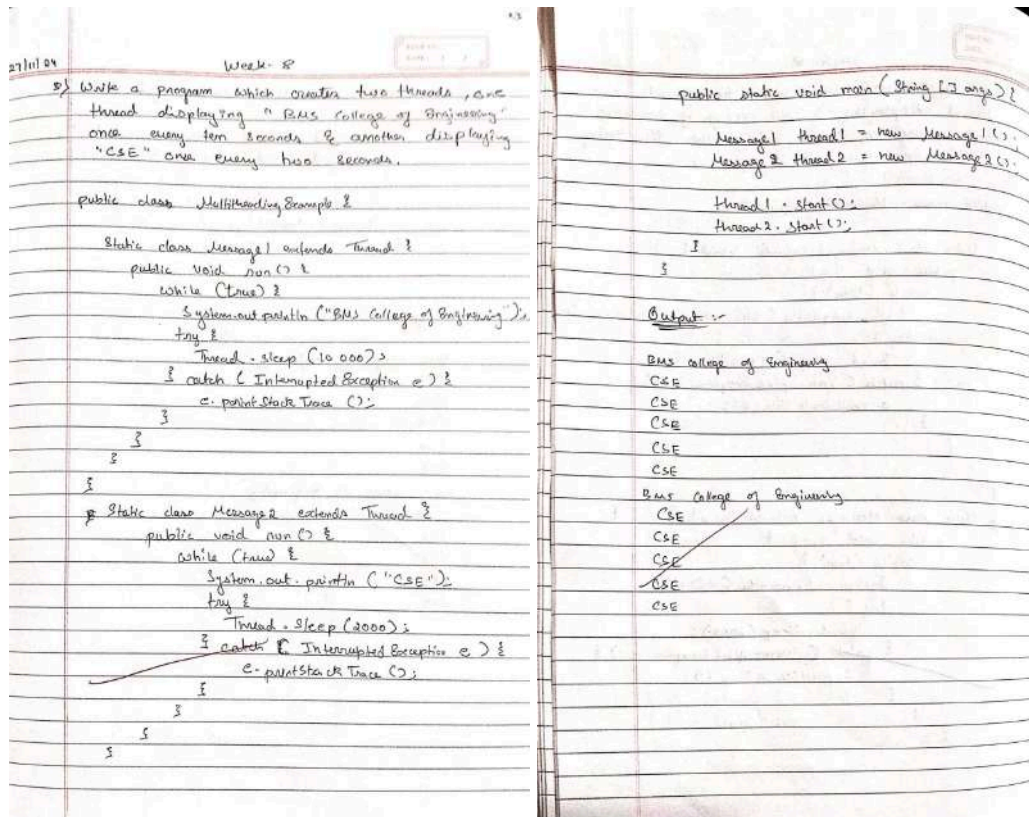 27/11/24
Week- 8
Write a program which creates two threads, one
thread displaying "BMS College of Engineering"
once every ten seconds & another displaying
"CSE" once every two seconds.
public class MultithreadingExample {
Static class Message1 extends Thread {
public void run() {
while (true) {
System.out.println ("BMS College of Engineering");
try {
Thread.sleep (10 000);
} catch ( Interrupted Exception e ) {
e. printStackTrace ();
}
}
}
}
Static class Message2 extends Thread {
public void run() {
while (true) {
System.out.println ("CSE");
try {
Thread.Sleep (2000);
} catch ( Interrupted Exception e ) {
e. printStackTrace ();
}
}
}
}
public static void main ( String [] args) {
Message1 thread1 = new Message1 ();
Message2 thread2 = new Message2 ();
thread1. start ();
thread2. start ();
}
}
Output :-
BMS college of Engineering
CSE
CSE
CSE
CSE
CSE
BMS College of Engineering
CSE
CSE
CSE
CSE
CSE